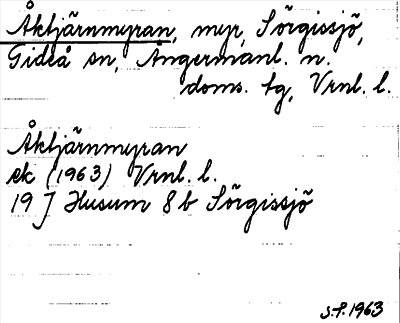 Åktjärnmyran, myr, Sörgissjö,
Gideå sn, Ångermanl. n.
doms. tg, Vrnl. l.
Åktjärnmyran
ek (1963) Vrnl. l.
19 J Husum 8b Sörgissjö
S.P. 1963